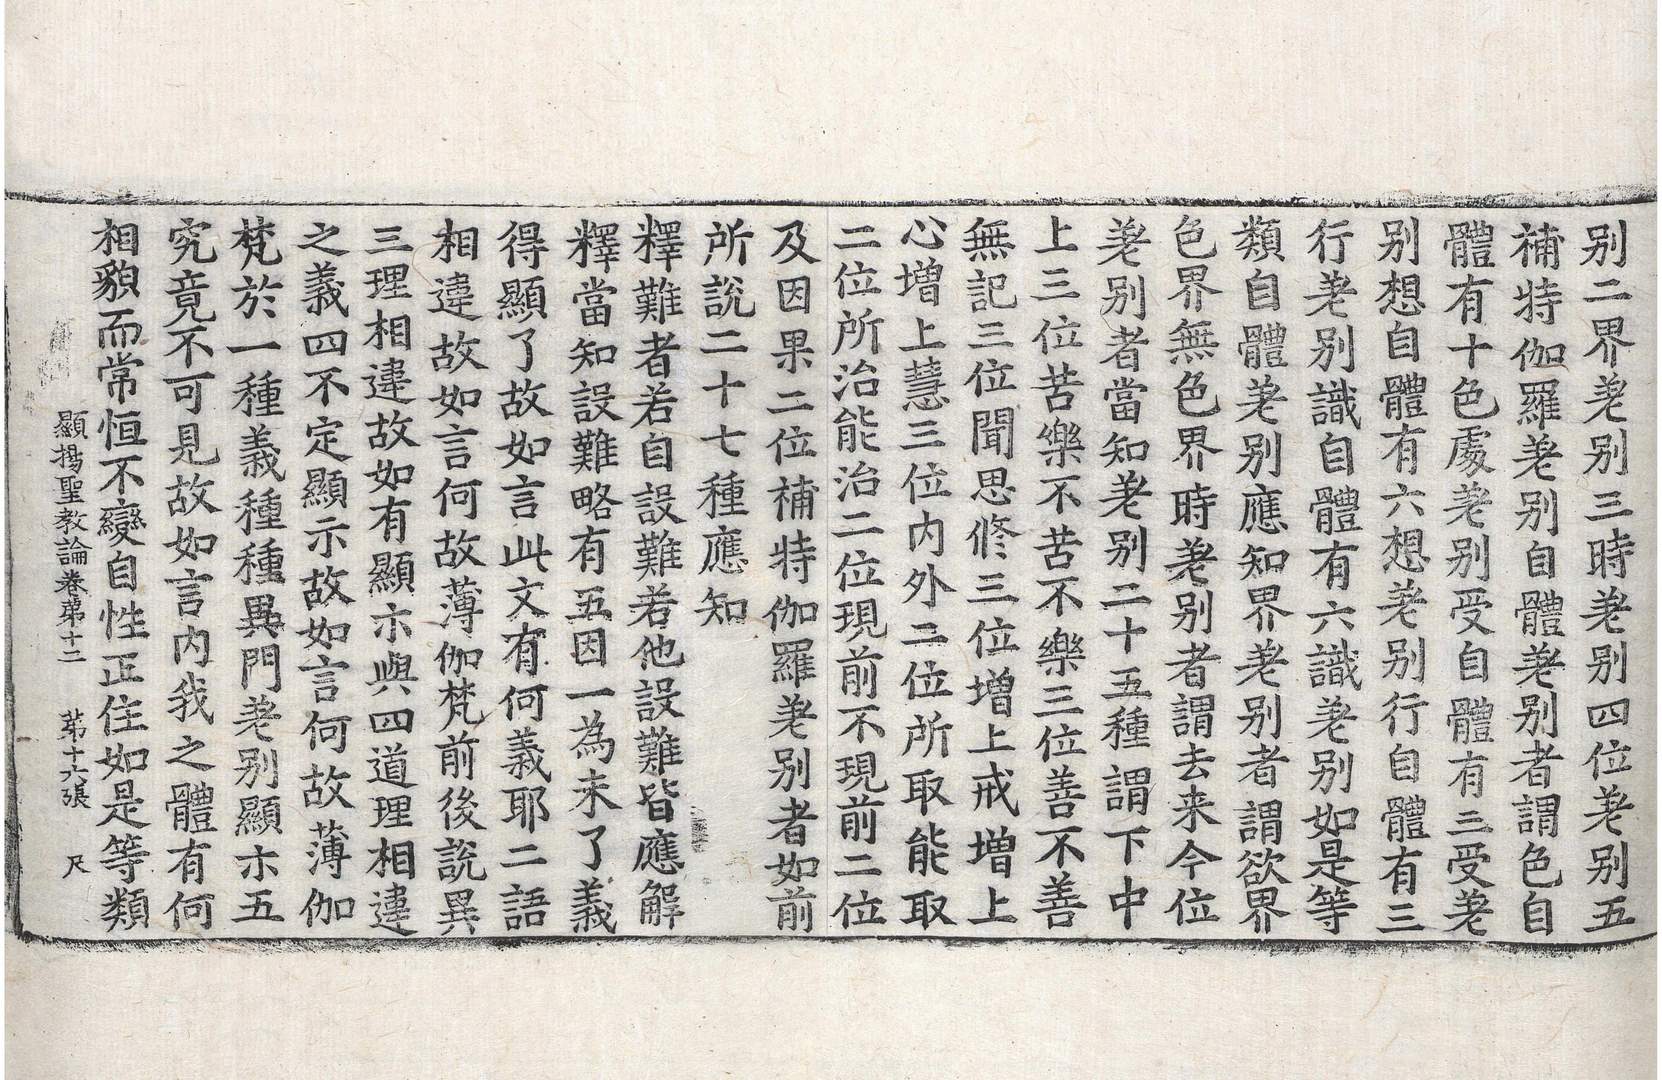 别二界差别三時差别四位差别五
補特伽羅差别自體差别者謂色自
體有十色處差别受自體有三受差
别想自體有六想差别行自體有三
行差别識自體有六識差别如是等
類自體差别應知界差别者謂欲界
色界無色界時差别者謂去来今位
差别者當知差别二十五種謂下中
上三位苦樂不苦不樂三位善不善
無記三位聞思修三位增上戒增上
心增上慧三位内外二位所取能取
二位所治能治二位現前不現前二位
及因果二位補特伽羅差别者如前
所說二十七種應知
釋難者若自設難若他設難皆應解
釋當知設難略有五因一為未了義
得顯了故如言此文有何義耶二語
相違故如言何故薄伽梵前後說異
三理相違故如有顯示與四道理相違
之義四不定顯示故如言何故薄伽
梵於一種義種種異門差别顯示五
究竟不可見故如言内我之體有何
相貌而常恒不變自性正住如是等類
顯揚聖教論卷第十二　第十六張　尺